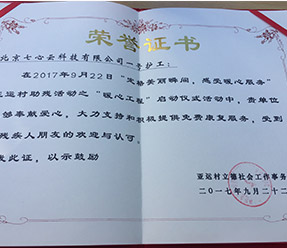 荣誉证书
北京七心云科技有限公司
在2017年9月22日“定格美丽瞬间，感受暖心服务”
亚运村助残活动之“暖心工程”启动仪式活动中，贵单位
奉献爱心，大力支持和积极提供免费康复服务，受到
残疾人朋友的欢迎与认可。
发此证，以示鼓励
亚运村立德社会工作事务
二〇一七年九月二十二